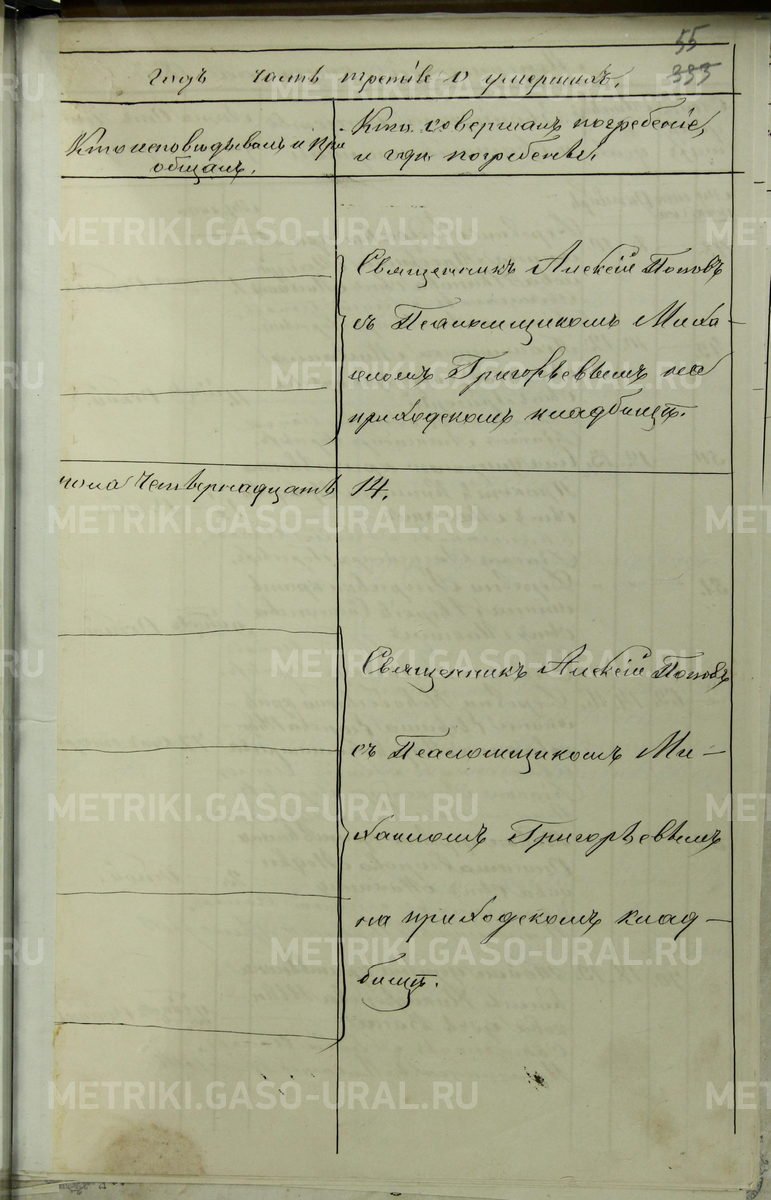 55
353
Годъ часть третiя о умершихъ.
Кто исповѣдывалъ и прi-
общалъ.
Кто совершалъ погребенiе,
и гдѣ погребены.
Священникъ Алексiй Поповъ
съ Псаломщикомъ Миха-
иломъ Григорьевымъ на
приходскомъ кладбищѣ.
пола Четырнадцать 14.
Священникъ Алексiй Поповъ
съ Псаломщикомъ Ми-
хаиломъ Григорьевымъ
на приходскомъ клад-
бищѣ.
METRIKI.GASO-URAL.RU